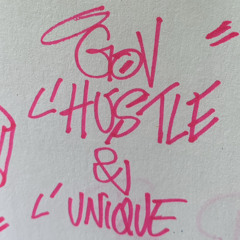 GOV
L'HUSTLE
&
L'UNIQUE